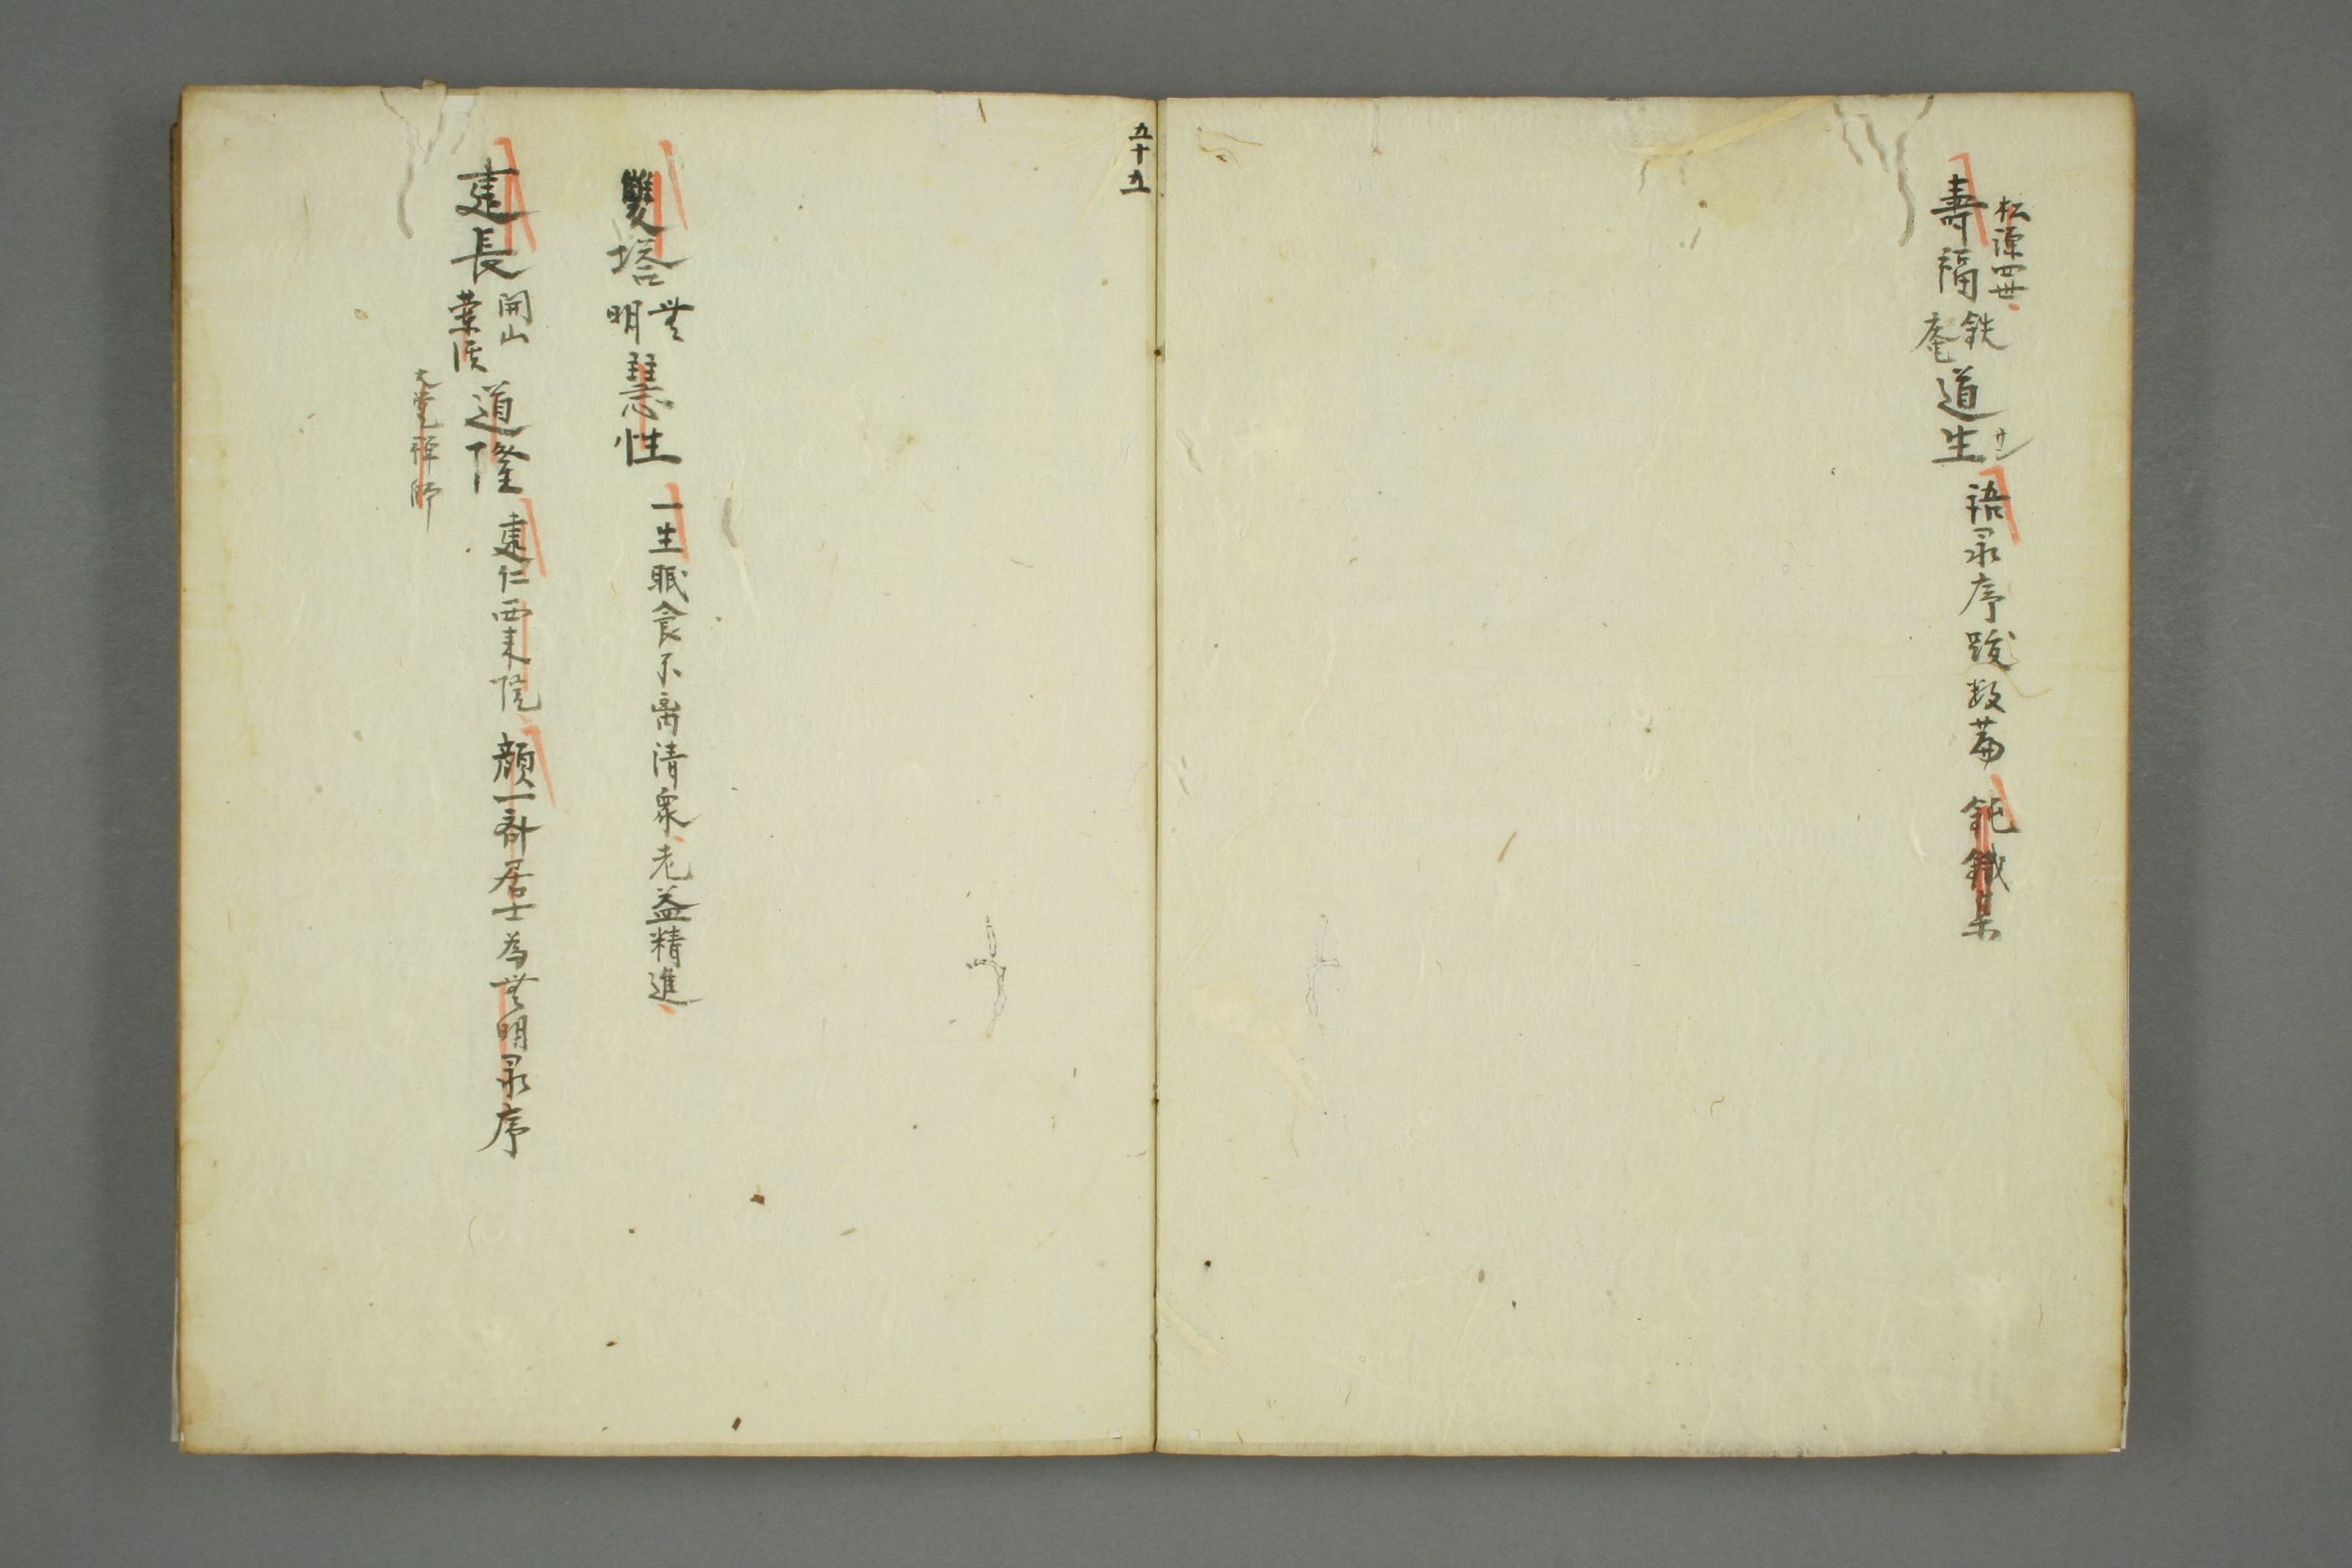 松源四世
寿福鉄庵道生サン 語录序跋数萹 鈍鐵集
五十九
雙塔無明慧性 一生眠食不离清衆老益精進
建長開山蘭渓道隆 建仁西来院 顔一斎居士為無明录序
大覚禅師